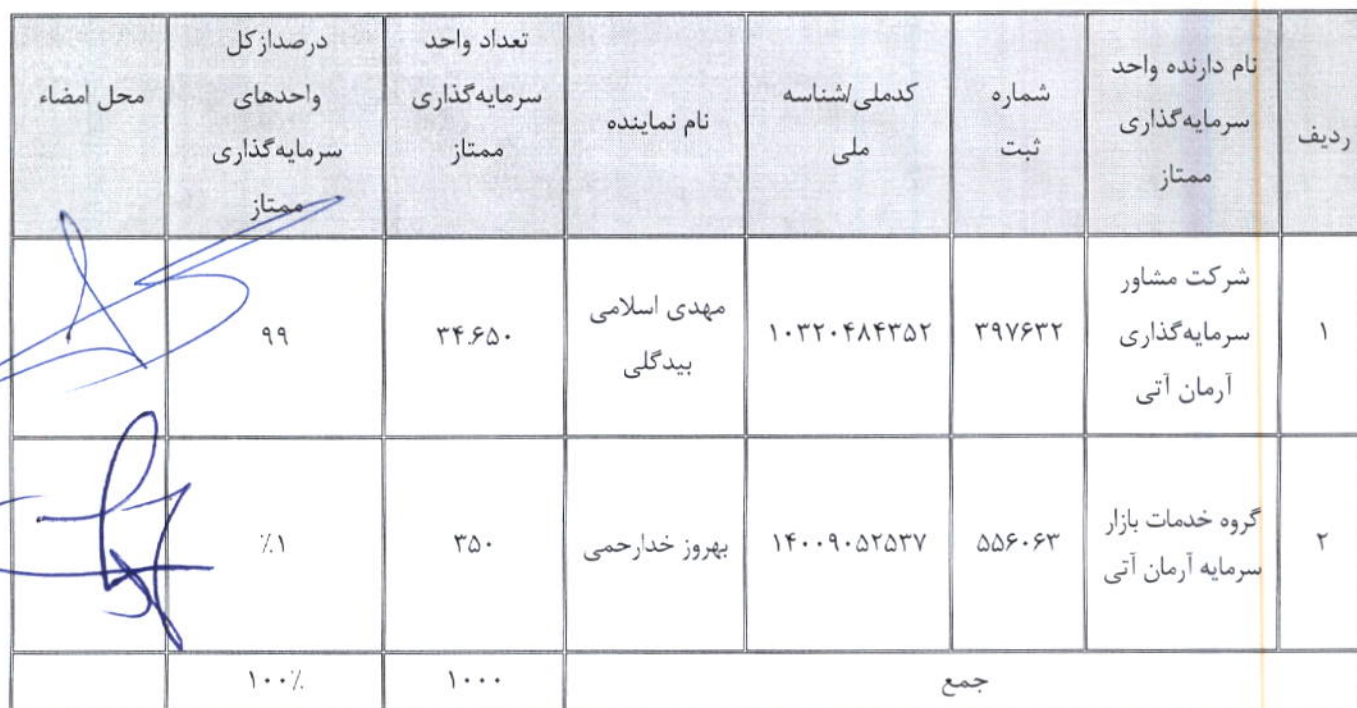 ردیف
نام دارنده واحد
سرمایه‌گذاری
ممتاز
شماره
ثبت
کدملی/شناسه
ملی
نام نماینده
تعداد واحد
سرمایه‌گذاری
ممتاز
درصدازکل
واحدهای
سرمایه‌گذاری
ممتاز
محل امضاء
۱
شرکت مشاور
سرمایه‌گذاری
آرمان آتی
۳۹۷۶۳۲
۱۰۳۲۰۴۸۴۳۵۲
مهدی اسلامی
بیدگلی
۳۴.۶۵۰
۹۹
۲
گروه خدمات بازار
سرمایه آرمان آتی
۵۵۶۰۶۳
۱۴۰۰۹۰۵۲۵۳۷
بهروز خدارحمی
۳۵۰
٪۱
جمع
۱۰۰۰
۱۰۰٪